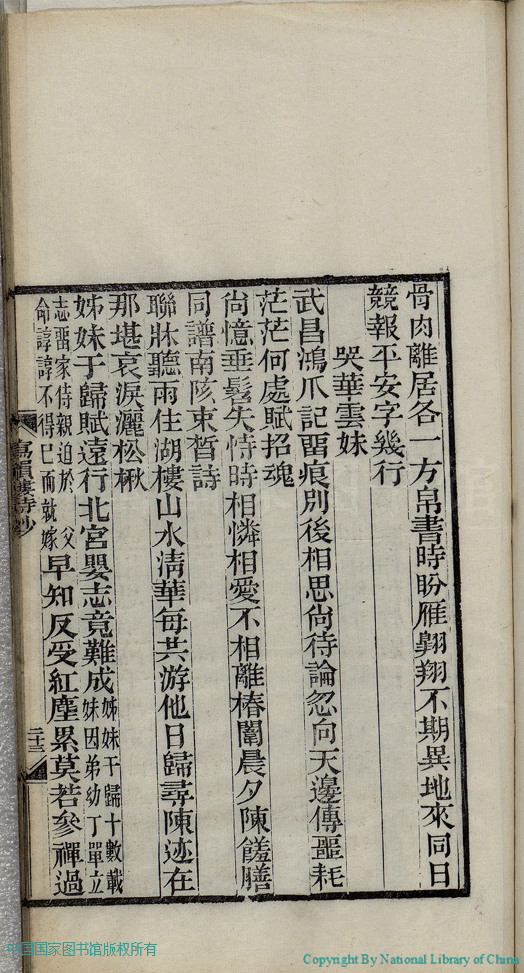 骨肉離居各一方帛書時盼雁翺翔不期異地來同日
競報平安字幾行
哭華雲妹
武昌鴻爪記畱痕別後相思尙待論忽向天邊傳噩耗
茫茫何處賦招魂
尙憶垂髫失恃時相憐相愛不相離椿闈晨夕陳饈膳
同譜南陔束晳詩
聯牀聽雨住湖樓山水淸華每共游他日歸尋陳迹在
那堪哀淚灑松楸
姊妹于歸賦遠行北宮嬰志竟難成姊妹于歸十數載妹因弟幼丁單立
志畱家侍親迫於父命諄諄不得已而就嫁早知反受紅塵累莫若參禪過
韻樓詩鈔
二十三
中国国家图书馆版权所有
Copyright By National Library of China